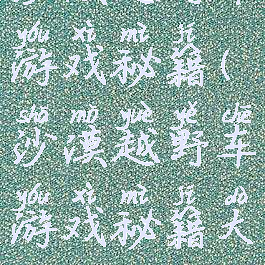 yóu xì mì jí
游戏秘籍(
shā mò yuè yě chē
沙漠越野车
yóu xì mì jí dà
游戏秘籍大